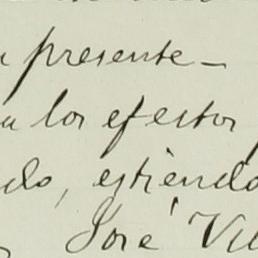 presente_
los efectos
do, extiendo
José